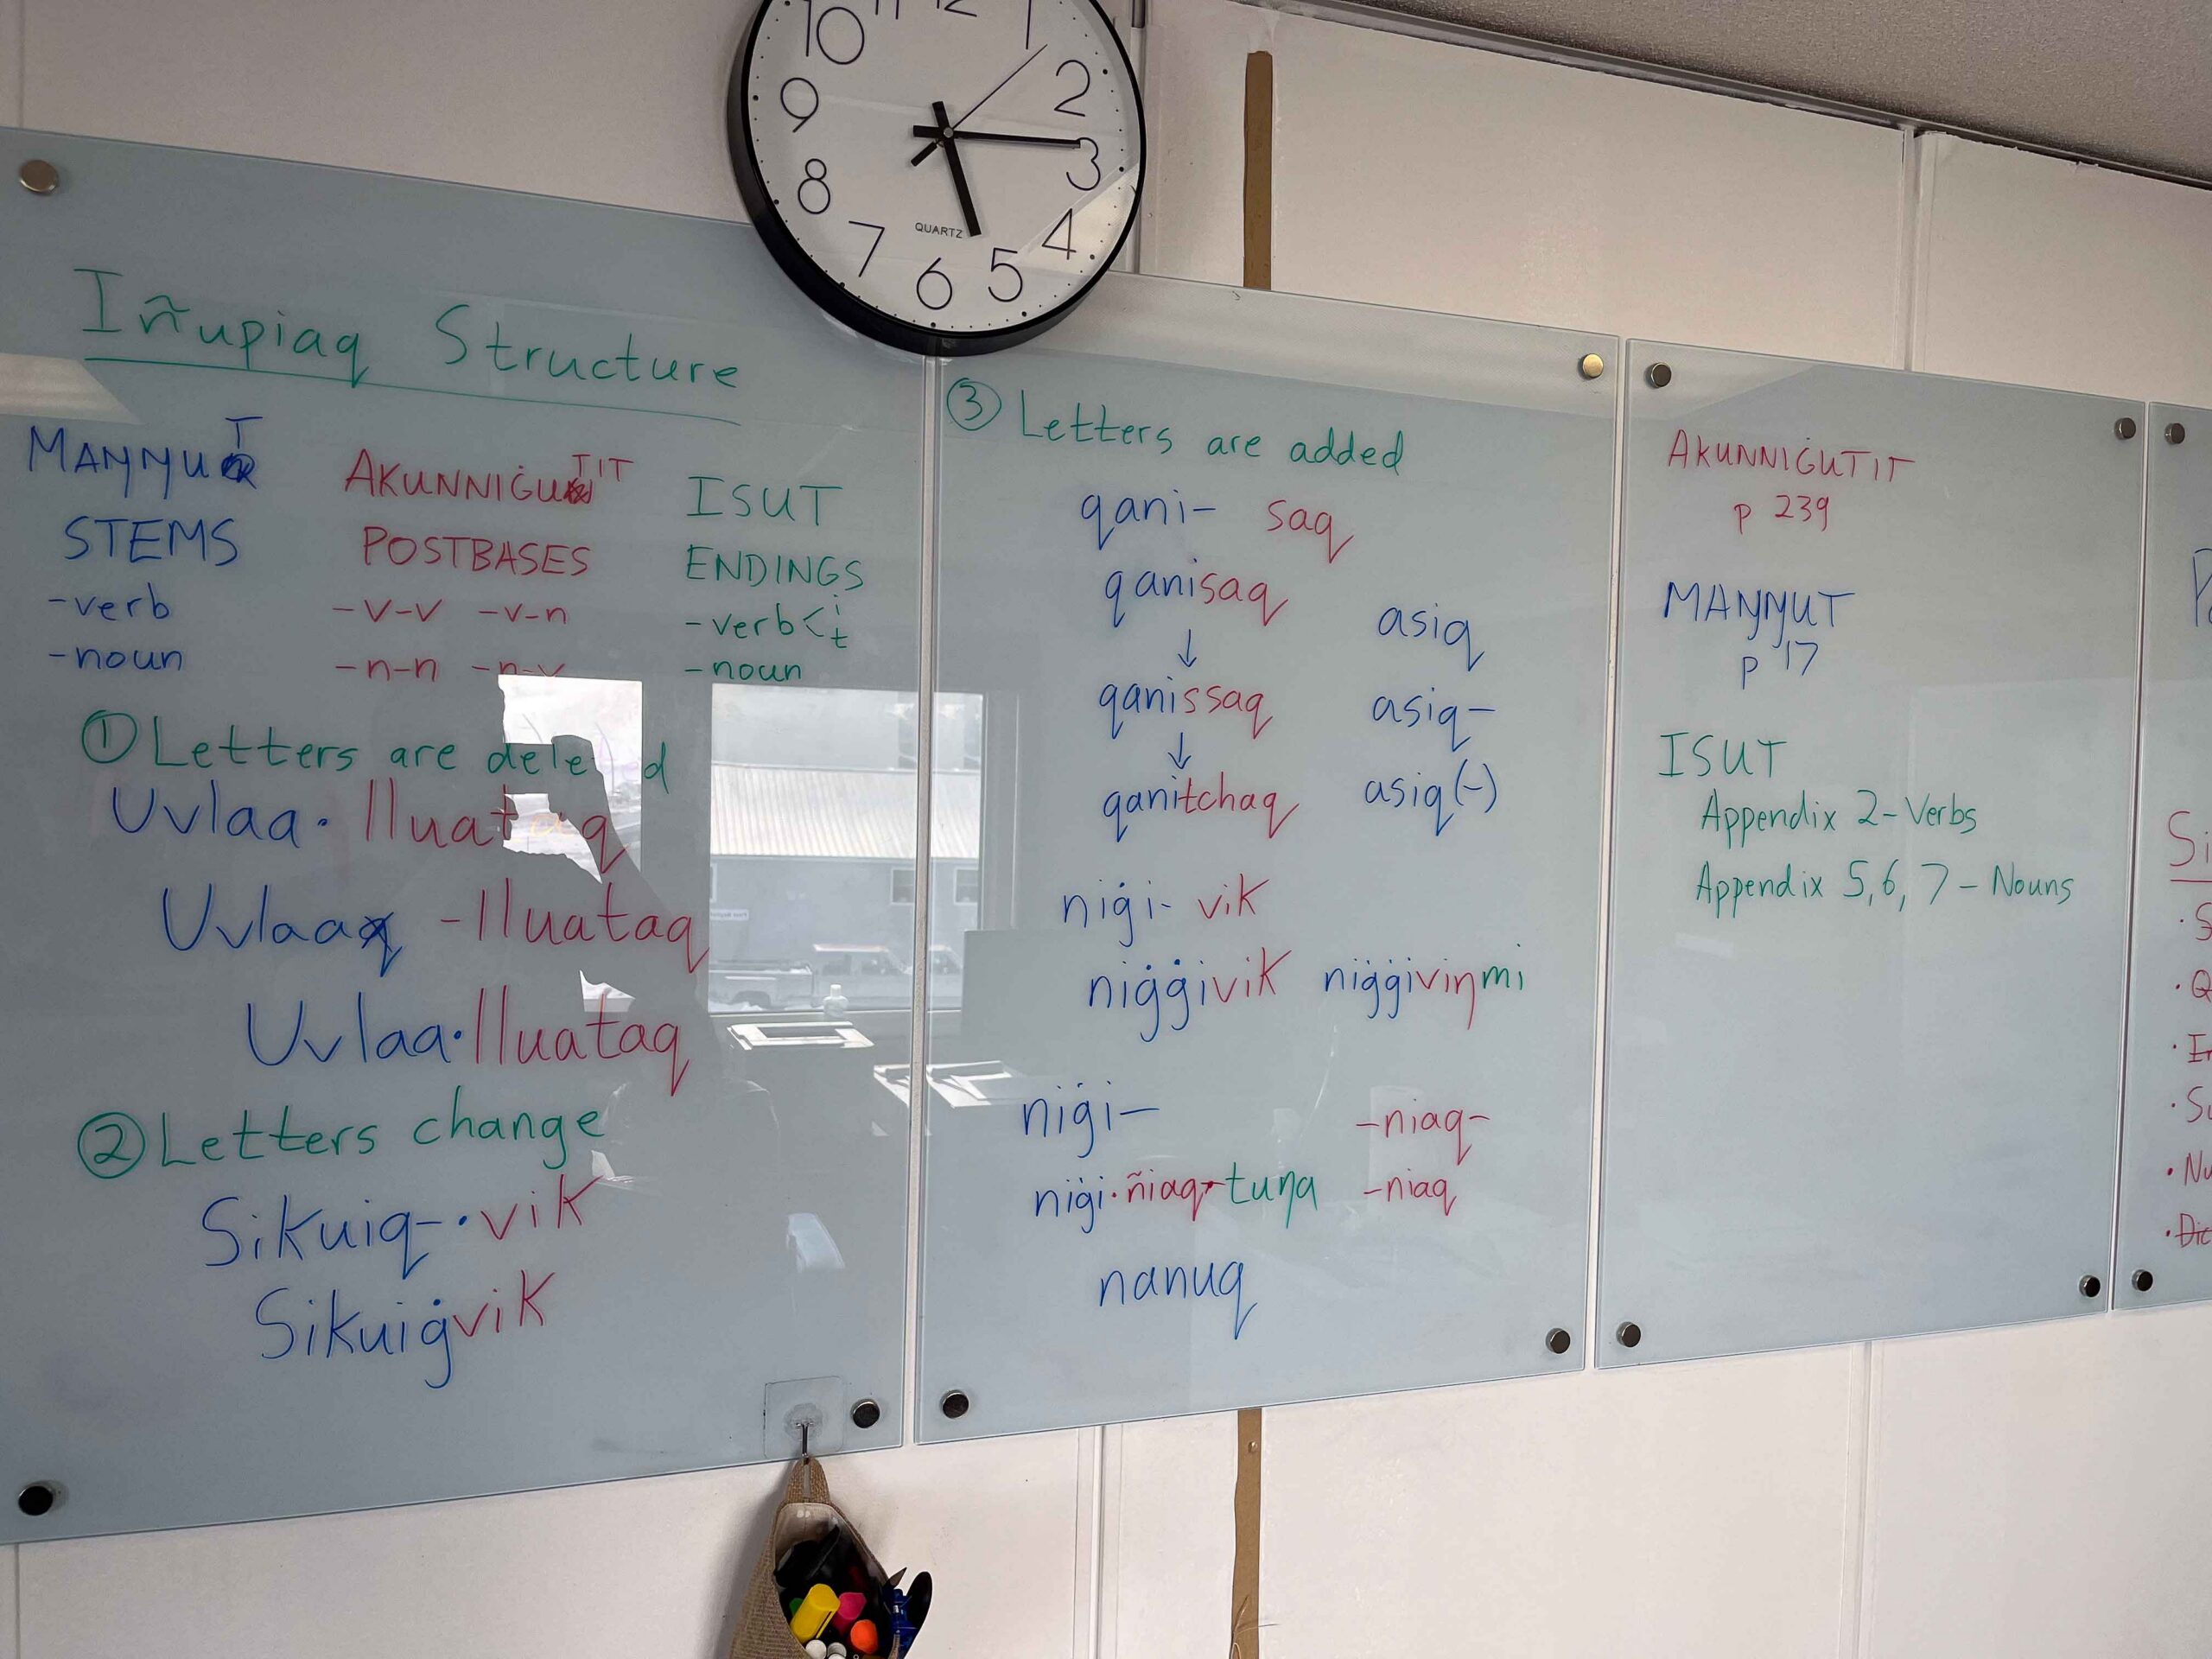 10 11 12 1
9 2
8 3
7 6 5 4
QUARTZ
Iñupiaq Structure
MAŊŊUT AKUNNIĠUTIT ISUT
STEMS POSTBASES ENDINGS
-verb -v-v -v-n -verb< i t
-noun -n-n -n-v -noun
① Letters are deleted
Uvlaa·lluataq
Uvlaaq -lluataq
Uvlaa·lluataq
② Letters change
Sikuiq-·vik
Sikuiġvik
③ Letters are added
qani- saq
qanisaq asiq
↓
qanissaq asiq-
↓
qanitchaq asiq(-)
niġi- vik
niġġivik niġġiviŋmi
niġi- -niaq-
niġi·ñiaq·tuŋa -niaq
nanuq
AKUNNIĠUTIT
p 239
MAŊŊUT
p 17
ISUT
Appendix 2-Verbs
Appendix 5,6,7-Nouns